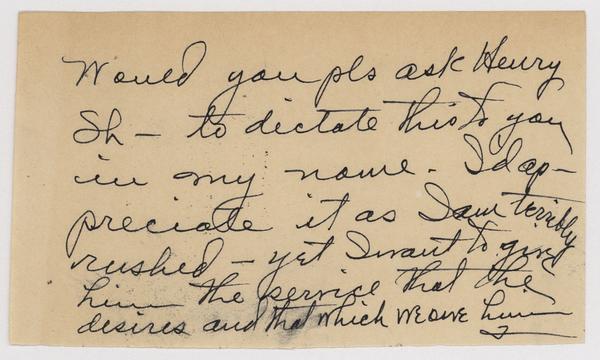 Would you pls ask Henry
Sh— to dictate this to you
in my name. I'd ap-
preciate it as I am terribly
rushed — yet I want to give
him the service that he
desires and that which we owe him